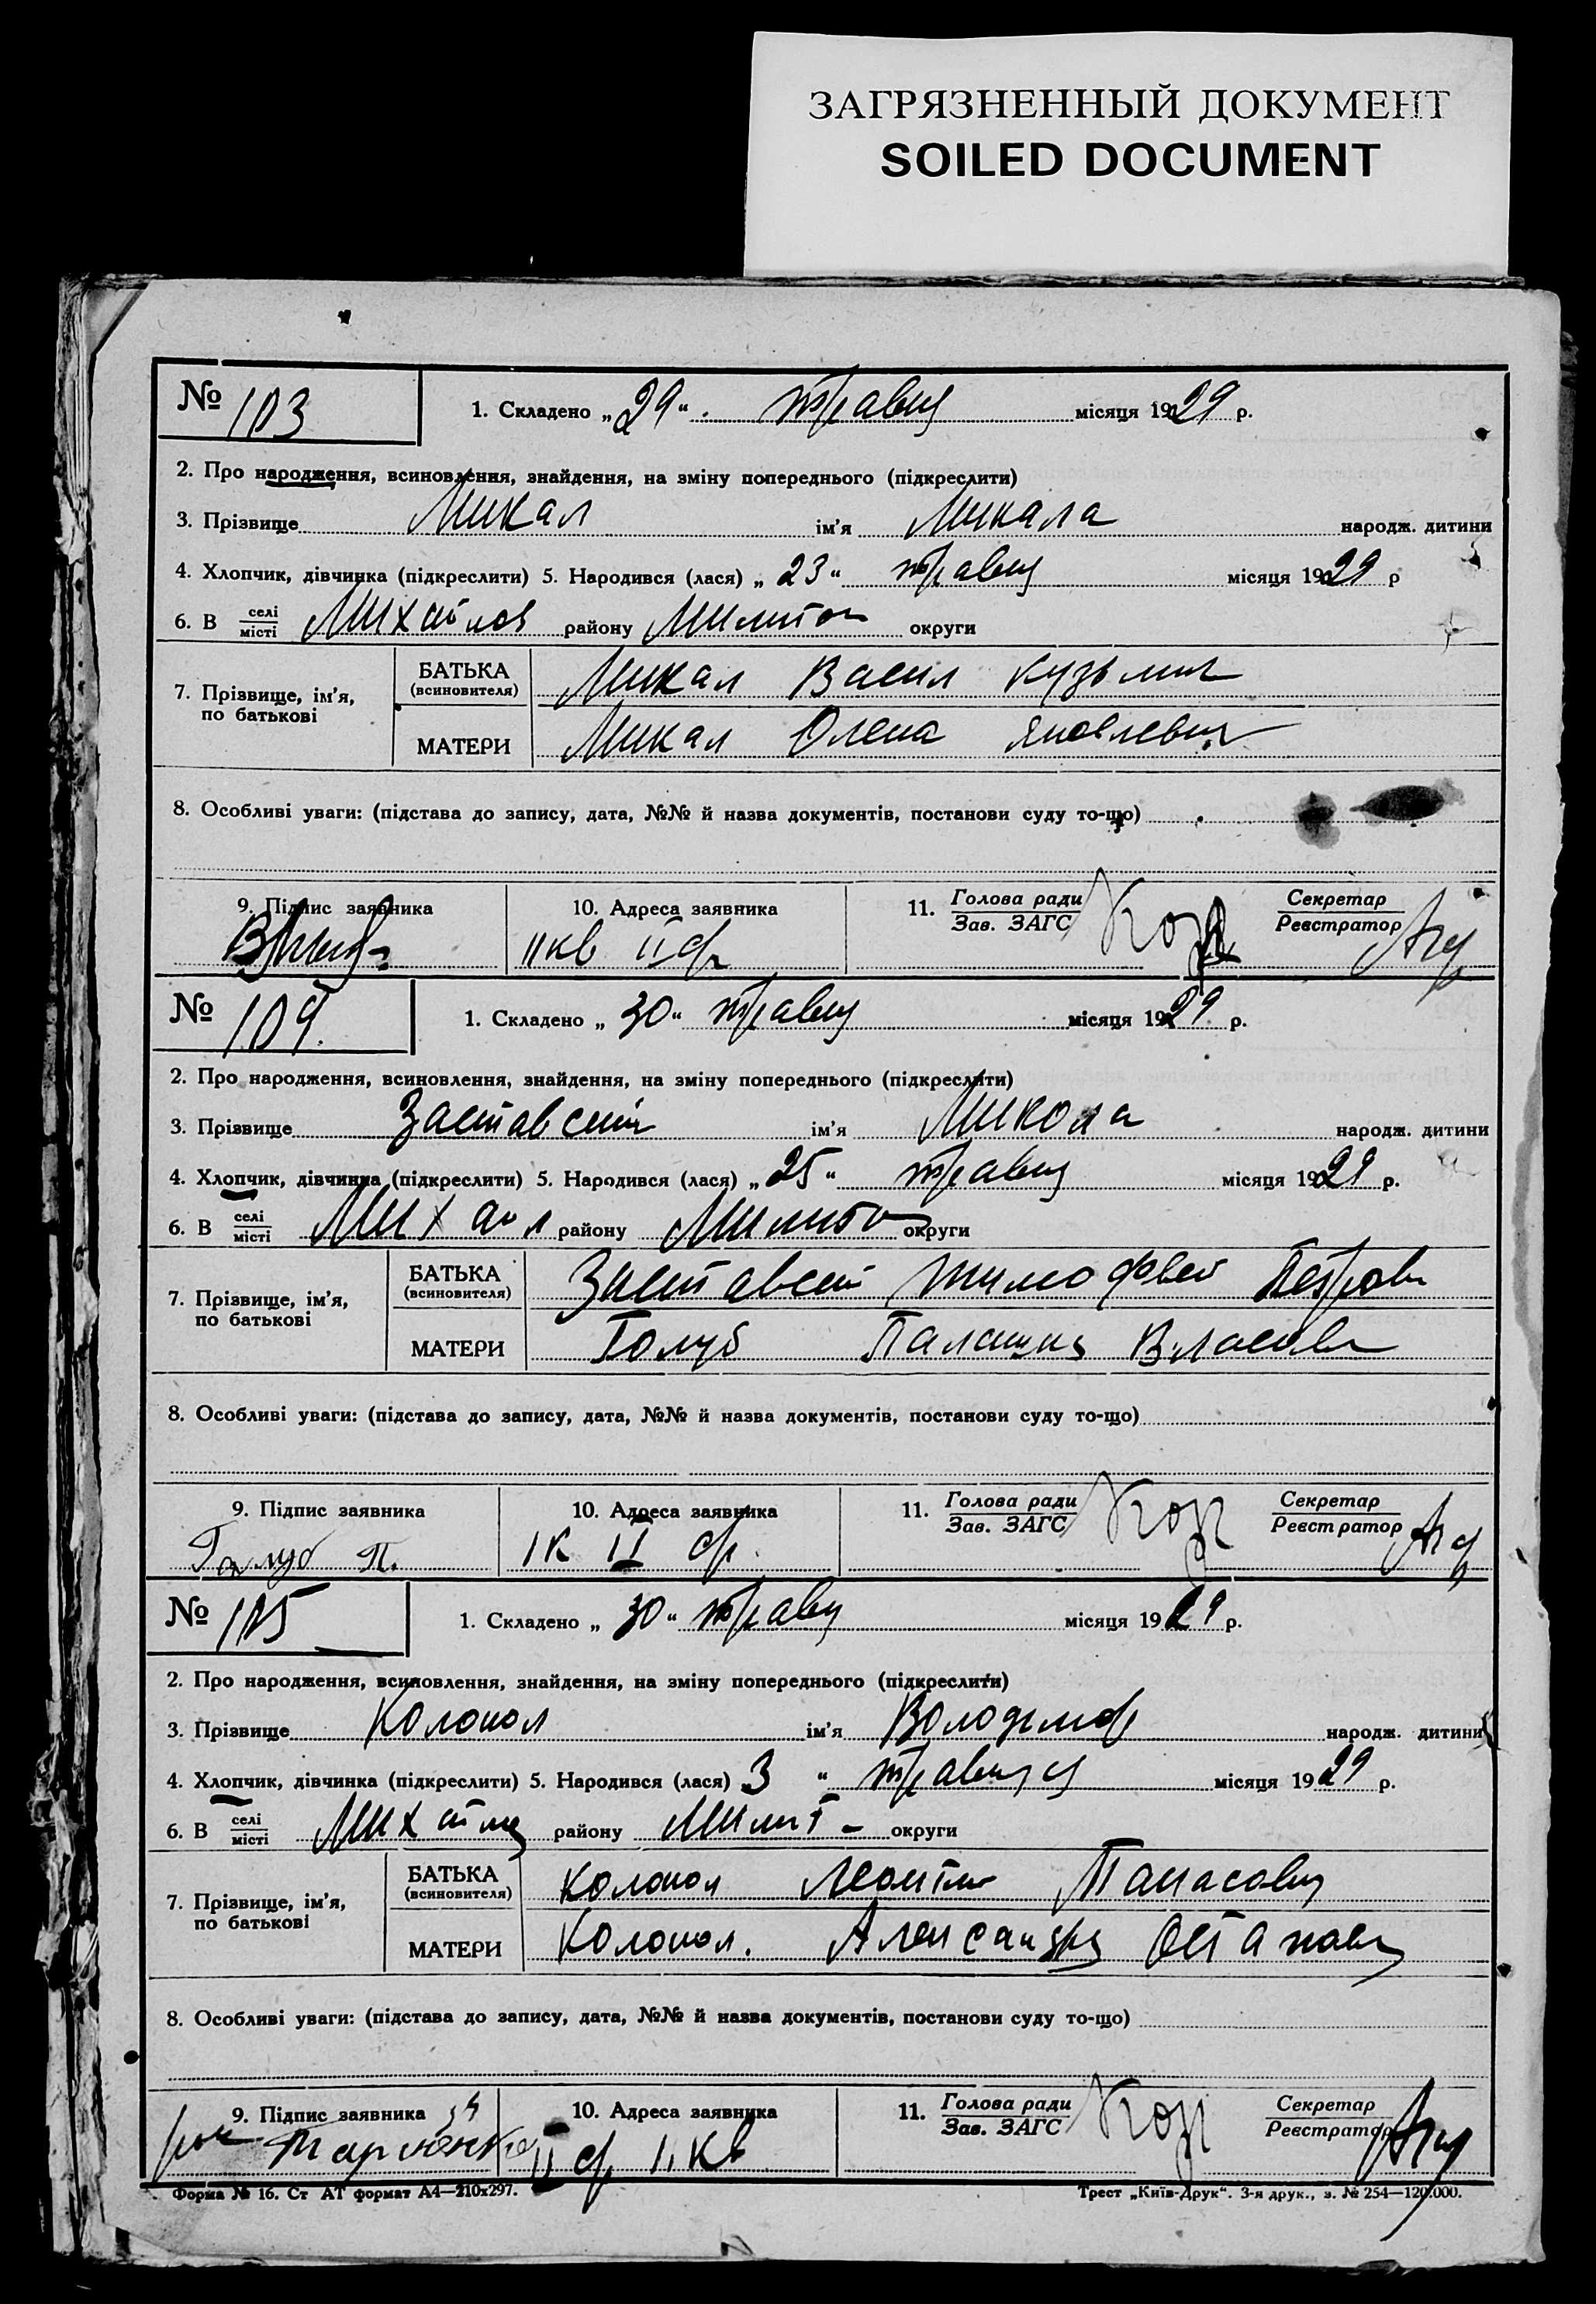 ЗАГРЯЗНЕННЫЙ ДОКУМЕНТ
SOILED DOCUMENT
№ 103
1. Складено „29“ травця місяця 1929 р.
2. Про народження, всиновлення, знайдення, на зміну попереднього (підкреслити)
3. Прізвище Микал ім'я Микала народж. дитини
4. Хлопчик, дівчинка (підкреслити) 5. Народився (лася) „23“ травця місяця 1929 р
6. В селі місті Михайлов району Милитоп округи
7. Прізвище, ім'я, по батькові
БАТЬКА (всиновителя) Микал Васил Кузьмич
МАТЕРИ Микал Олена Яковлевна
8. Особливі уваги: (підстава до запису, дата, №№ й назва документів, постанови суду то-що)
9. Підпис заявника 10. Адреса заявника 11. Голова ради Зав. ЗАГС Секретар Реєстратор
IIкв II
№ 104
1. Складено „30“ травця місяця 1929 р.
2. Про народження, всиновлення, знайдення, на зміну попереднього (підкреслити)
3. Прізвище ім'я Микола народж. дитини
4. Хлопчик, дівчинка (підкреслити) 5. Народився (лася) „25“ травця місяця 1929 р.
6. В селі місті Михайл району Милито округи
7. Прізвище, ім'я, по батькові
БАТЬКА (всиновителя) Тимофей Петров
МАТЕРИ Голуб Палашка Власовн
8. Особливі уваги: (підстава до запису, дата, №№ й назва документів, постанови суду то-що)
9. Підпис заявника 10. Адреса заявника 11. Голова ради Зав. ЗАГС Секретар Реєстратор
Голуб П. IК II
№ 105
1. Складено „30“ травц місяця 1929 р.
2. Про народження, всиновлення, знайдення, на зміну попереднього (підкреслити)
3. Прізвище Колокол ім'я Володимер народж. дитини
4. Хлопчик, дівчинка (підкреслити) 5. Народився (лася) 3 “ травця місяця 1929 р.
6. В селі місті Михайл району Милит - округи
7. Прізвище, ім'я, по батькові
БАТЬКА (всиновителя) Колокол Леонтий Панасович
МАТЕРИ Колокол. Александра Остапов
8. Особливі уваги: (підстава до запису, дата, №№ й назва документів, постанови суду то-що)
9. Підпис заявника 10. Адреса заявника 11. Голова ради Зав. ЗАГС Секретар Реєстратор
II IIкв
Форма № 16. Ст АТ формат А4—210х297.
Трест „Київ-Друк“. 3-я друк., з. № 254—120.000.